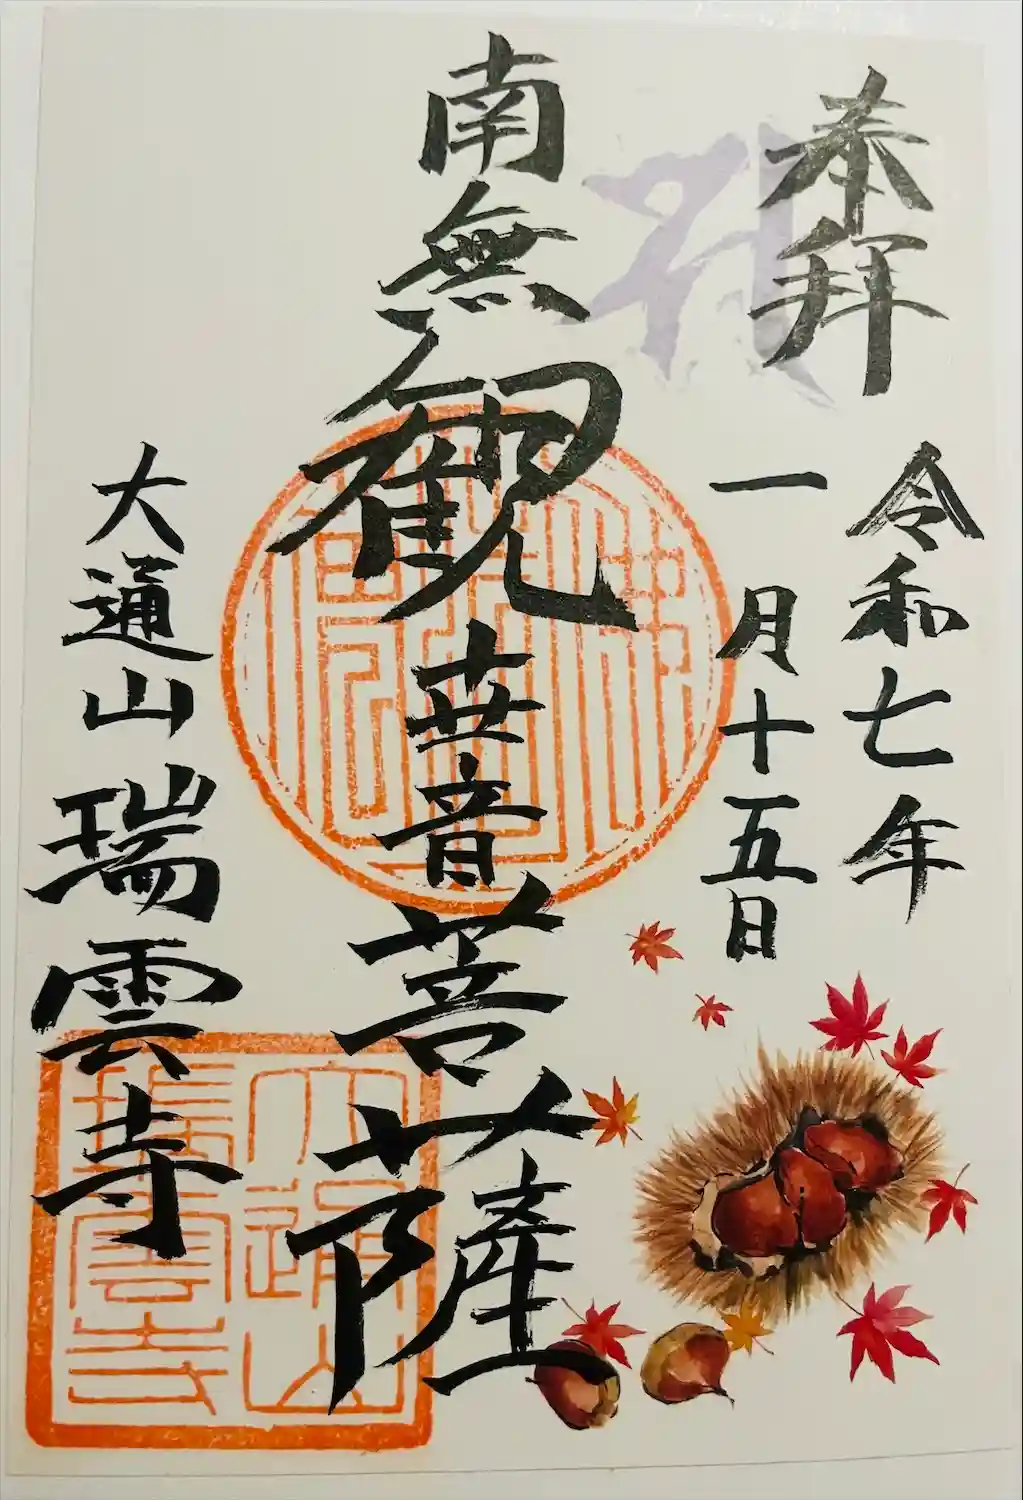 奉拝
令和七年
一月十五日
南無観世音菩薩
大通山瑞雲寺
大通山
瑞雲寺